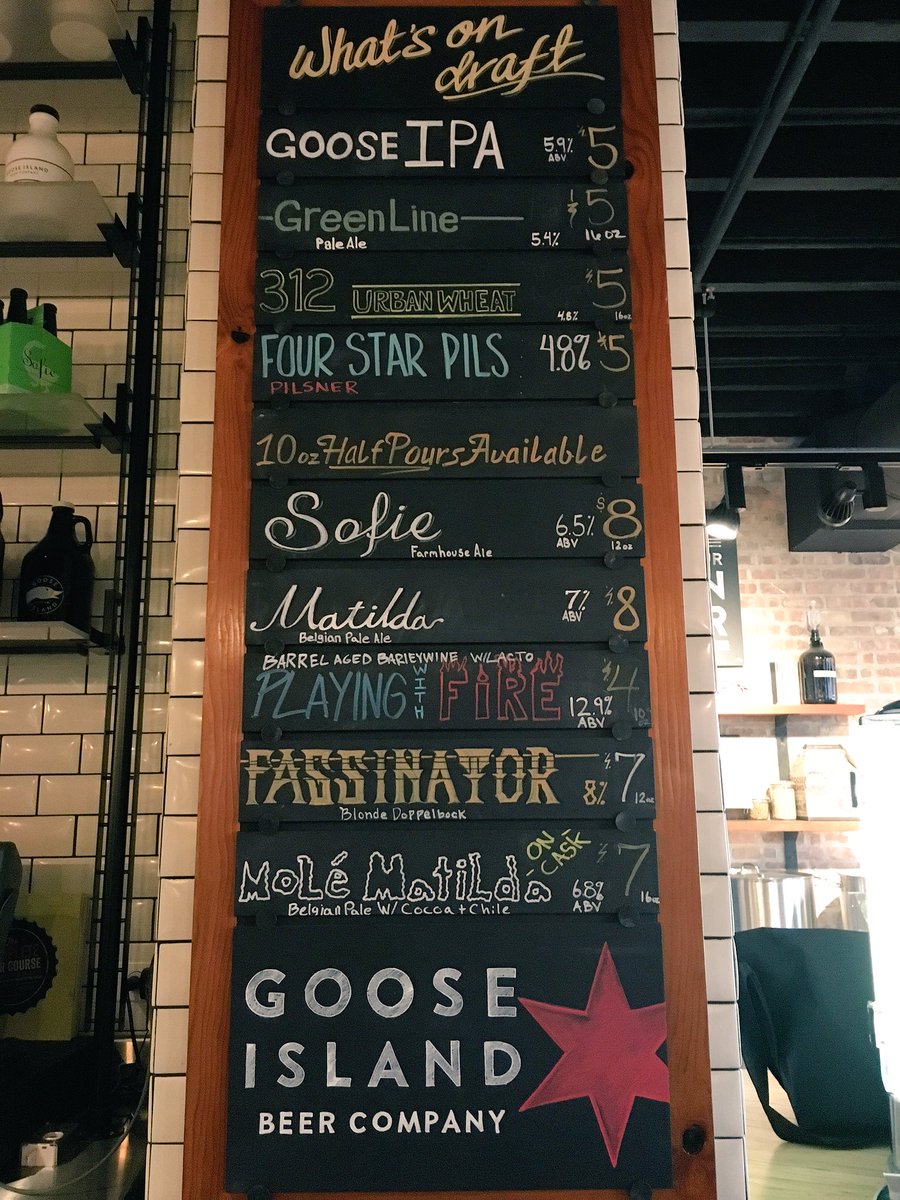 What's on
draft
GOOSE IPA 5.9% ABV $5
GreenLine $5
Pale Ale 5.4% 16 oz
312 URBAN WHEAT 4.8% $5 16oz
FOUR STAR PILS 4.8% $5
PILSNER
10oz Half Pours Available
Sofie 6.5% ABV $8
Farmhouse Ale 12oz
Matilda 7% ABV $8
Belgian Pale Ale
BARREL AGED BARLEYWINE W/LACTO
PLAYING WITH FIRE 12.9% ABV $4
FASSINATOR 8% $7
Blonde Doppelbock 12oz
MoLé Matilda ON CASK 6.8% ABV $7
Belgian Pale W/ Cocoa + Chile 16oz
GOOSE
ISLAND
BEER COMPANY
GOOSE ISLAND
Sofie
GOOSE
ISLAND
COURSE